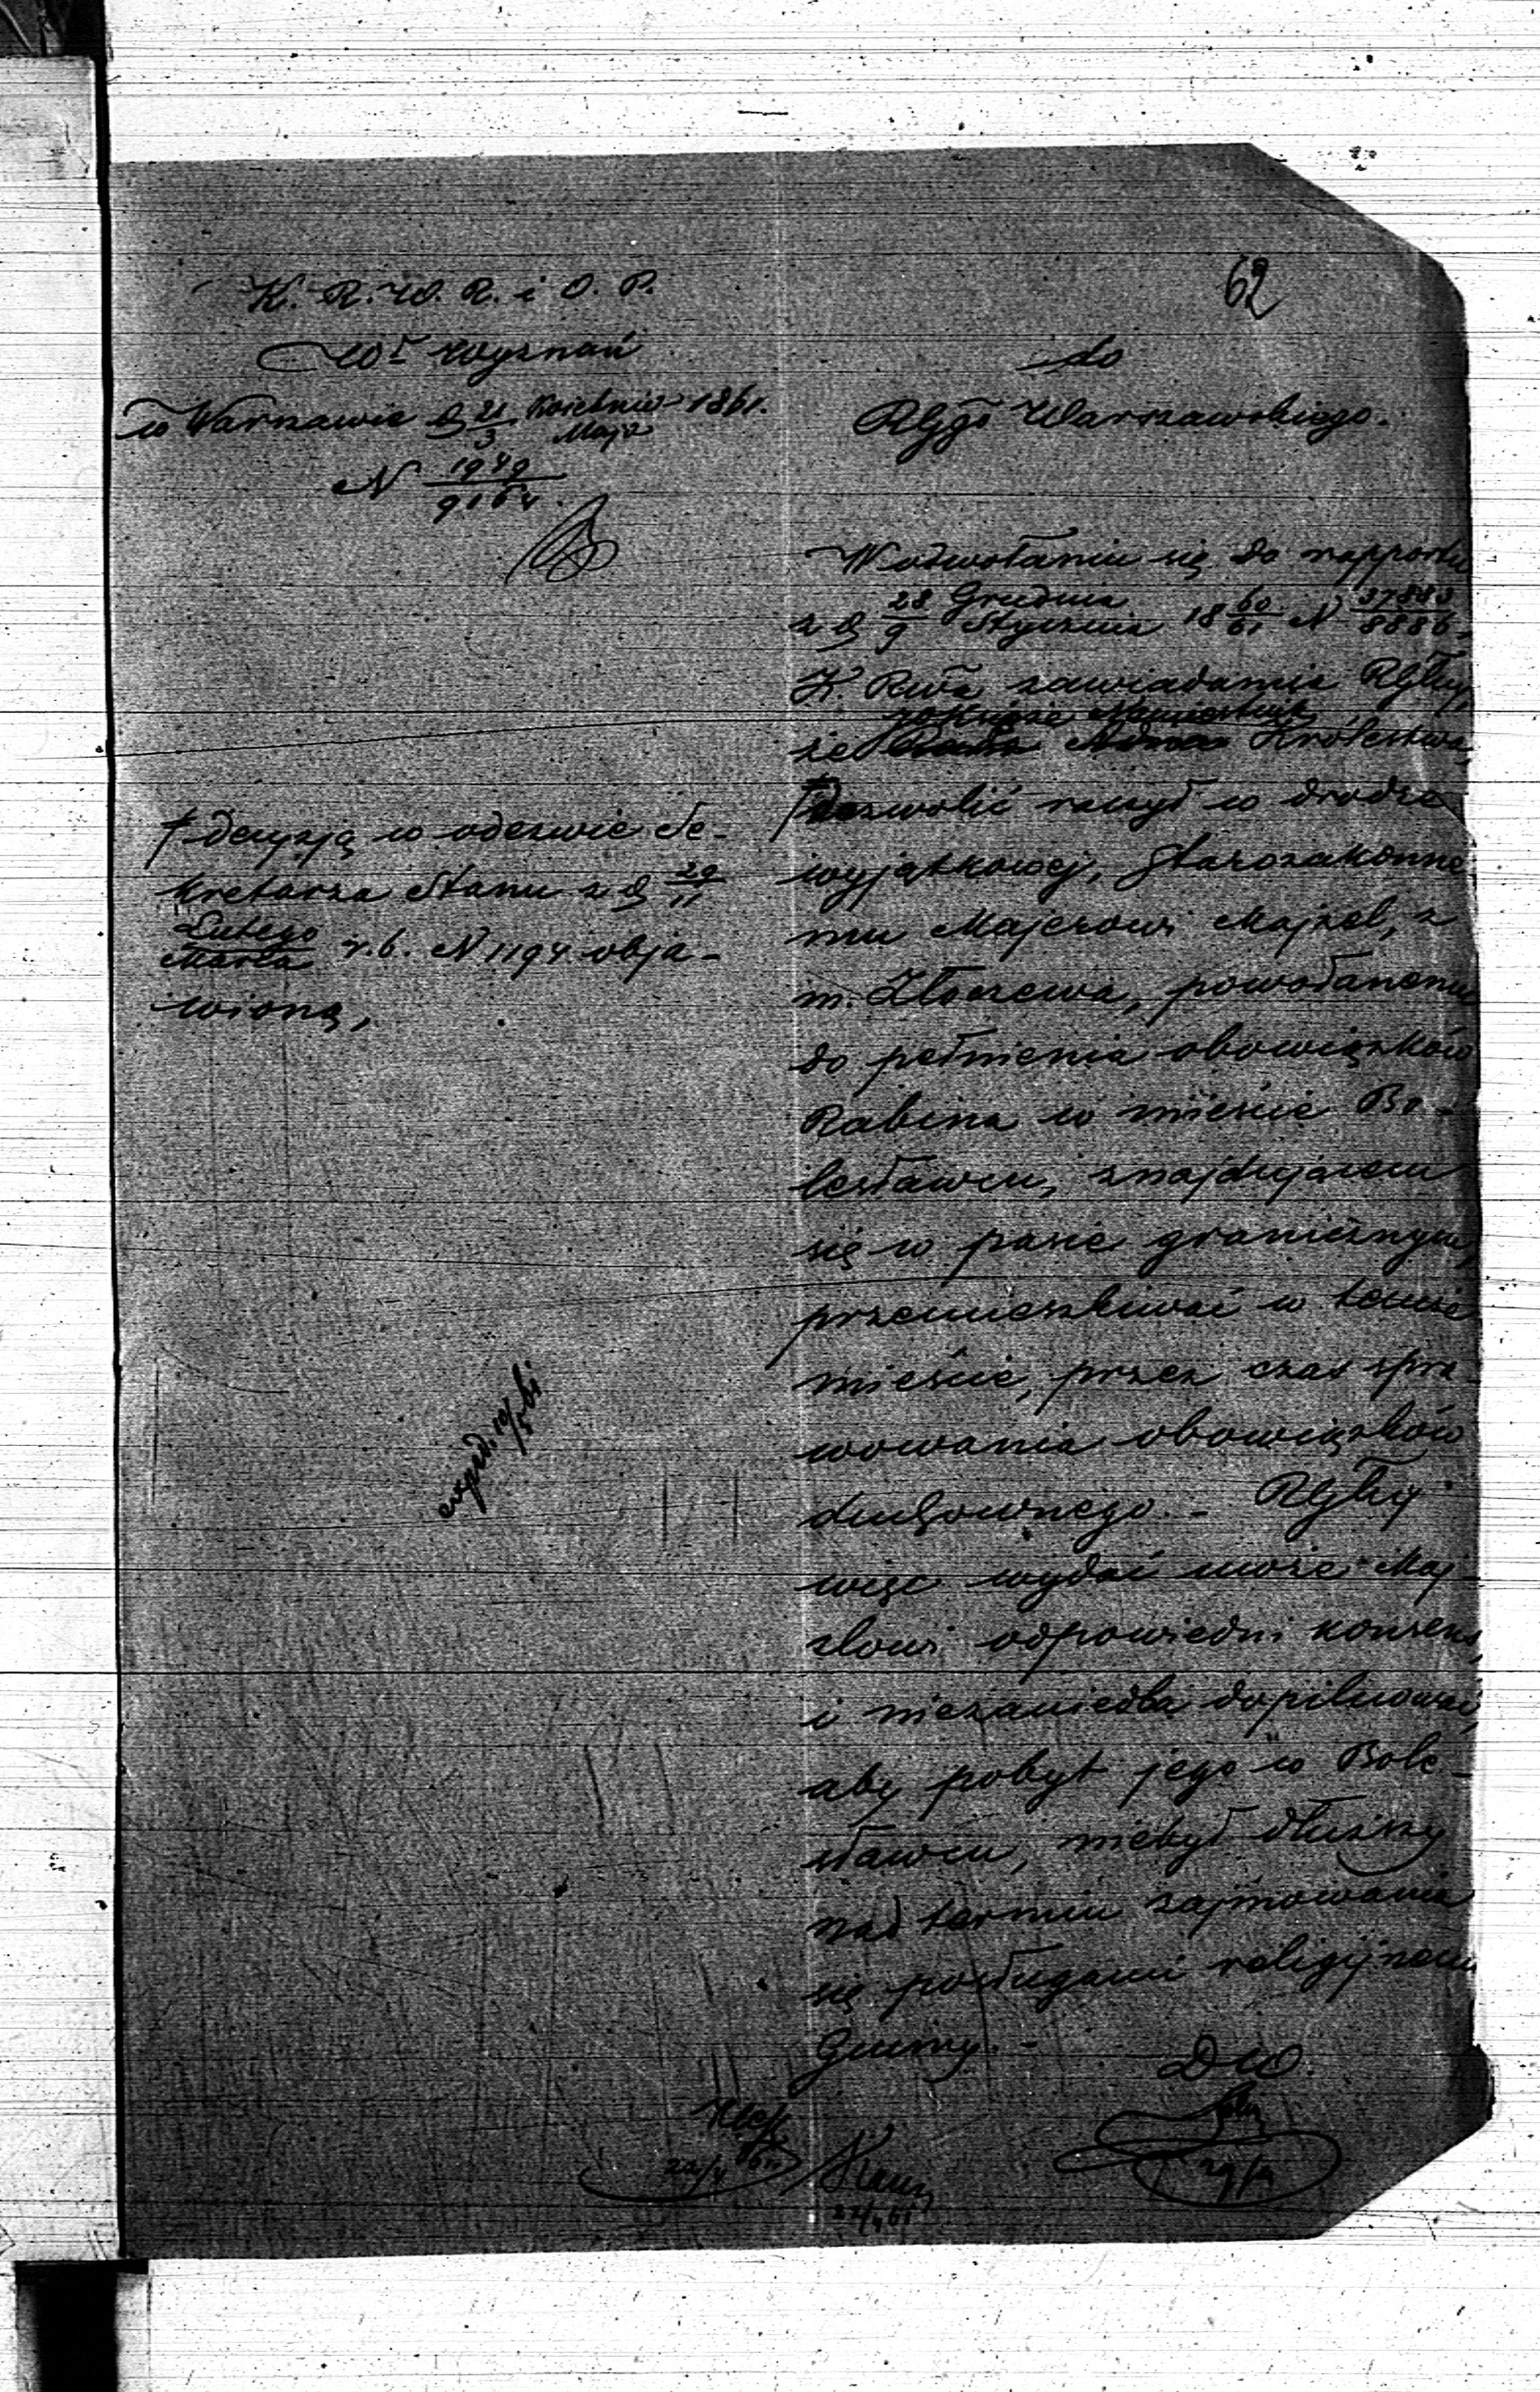 62
K. R. W. R. i O. P.
Wł Wyznań
w Warszawie d 21/3 Kwietnia/Maja 1861.
N 1949/9164
do
Rządu Warszawskiego.
W odwołaniu się do rapportu
z d 28/9 Grudnia/Stycznia 18 60/61 N 37883/8886
K. Rwa zawiadamia Rząd
że JO Książe Namiestnik Królestwa
† dozwolić raczył w drodze
wyjątkowej, starozakonne
mu Majerowi Majzel, z
m. Złoczewa, powołanemu
do pełnienia obowiązków
Rabina w mieście Bo-
lesławcu, znajdującem
się w pasie granicznym,
przemieszkiwać w temże
mieście, przez czas spra
wowania obowiązków
duchownego. - Rząd
więc wydać może Maj
zlowi odpowiedni konsens,
i niezaniedba dopilnować,
aby pobyt jego w Bole-
sławcu, niebył dłuższy
nad termin zajmowania
się posługami religijnemi
Gminy. -
D W.
29/4
22/4
22/4 61
† decyzją w odezwie Se-
kretarza Stanu z d 29/11
Lutego/Marca r. b. N 1194 obja-
wioną,
exped. 10/5 61